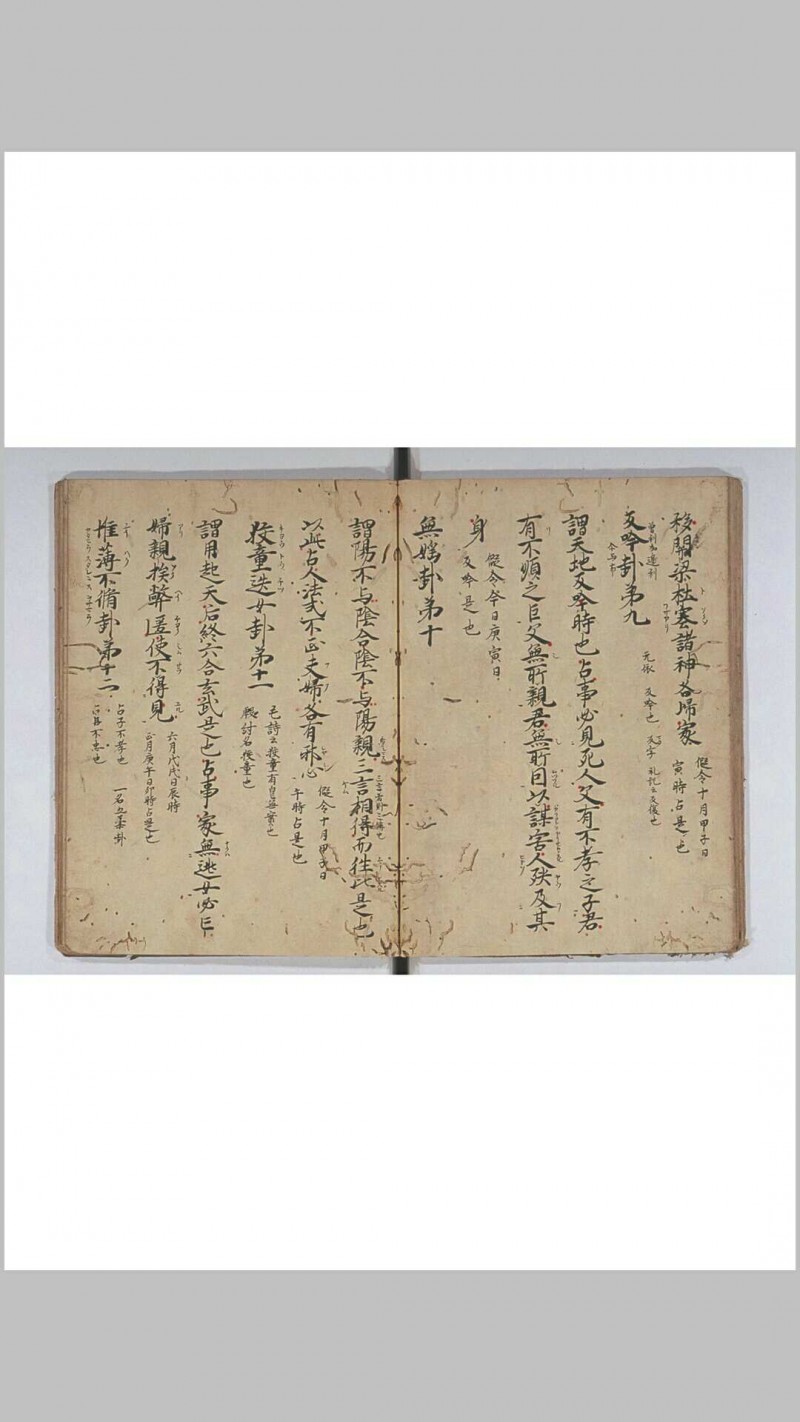 移關梁杜塞諸神各歸家
假令十月甲子日
寅時占是也
反吟卦第九
元依 反吟也 反字 礼記云反儀也
謂天地反吟時也占事必見死人父有不孝之子君
有不順之臣父無所親君無所因以謀害人殃及其
身
假令今日庚寅日
反吟是也
無婬卦第十
謂陽不与陰合陰不与陽親三言相得而往此是也
以此占人法式不正夫婦各有邪心
假令十月甲子日
午時占是也
狡童迭女卦第十一
毛詩云狡童有
名狡童也
謂用起天后終六合玄武是也占事家無逃女必亡
婦親挨弊匿使不得見
六月戊戌日辰時
正月庚午日卯時占是也
惟薄不脩卦第十二
占子不孝也
占臣不忠也
一名五柔卦